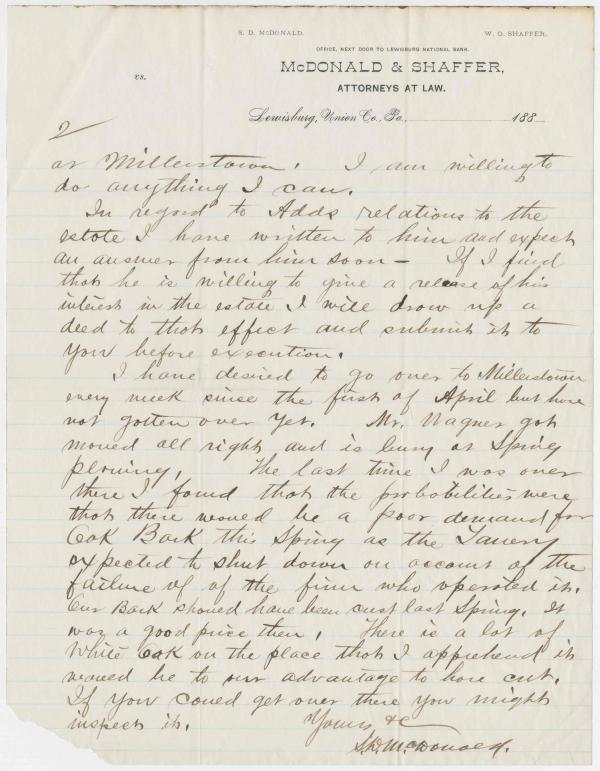 S. D. McDONALD. W. O. SHAFFER.
OFFICE, NEXT DOOR TO LEWISBURG NATIONAL BANK.
McDONALD & SHAFFER,
vs.
ATTORNEYS AT LAW.
Lewisburg, Union Co., Pa., 188
2
at Millerstown. I am willing to
do anything I can.
In regard to Adds relations to the
estate I have written to him and expect
an answer from him soon — If I find
that he is willing to give a release of his
interest in the estate I will draw up a
deed to that effect and submit it to
you before execution.
I have desired to go over to Millerstown
every week since the first of April but have
not gotten over yet. Mr. Wagner got
moved all right and is busy at Spring
plowing, The last time I was over
there I found that the probabilities were
that there would be a poor demand for
Oak Bark this Spring as the Tanery
expected to shut down on account of the
failure of of the firm who operated it.
Our Bark should have been cut last Spring. It
was a good price then, There is a lot of
White Oak on the place that I apprehend it
would be to our advantage to have cut.
If you could get over there you might
inspect it. Yours &c
S. D. McDonald.